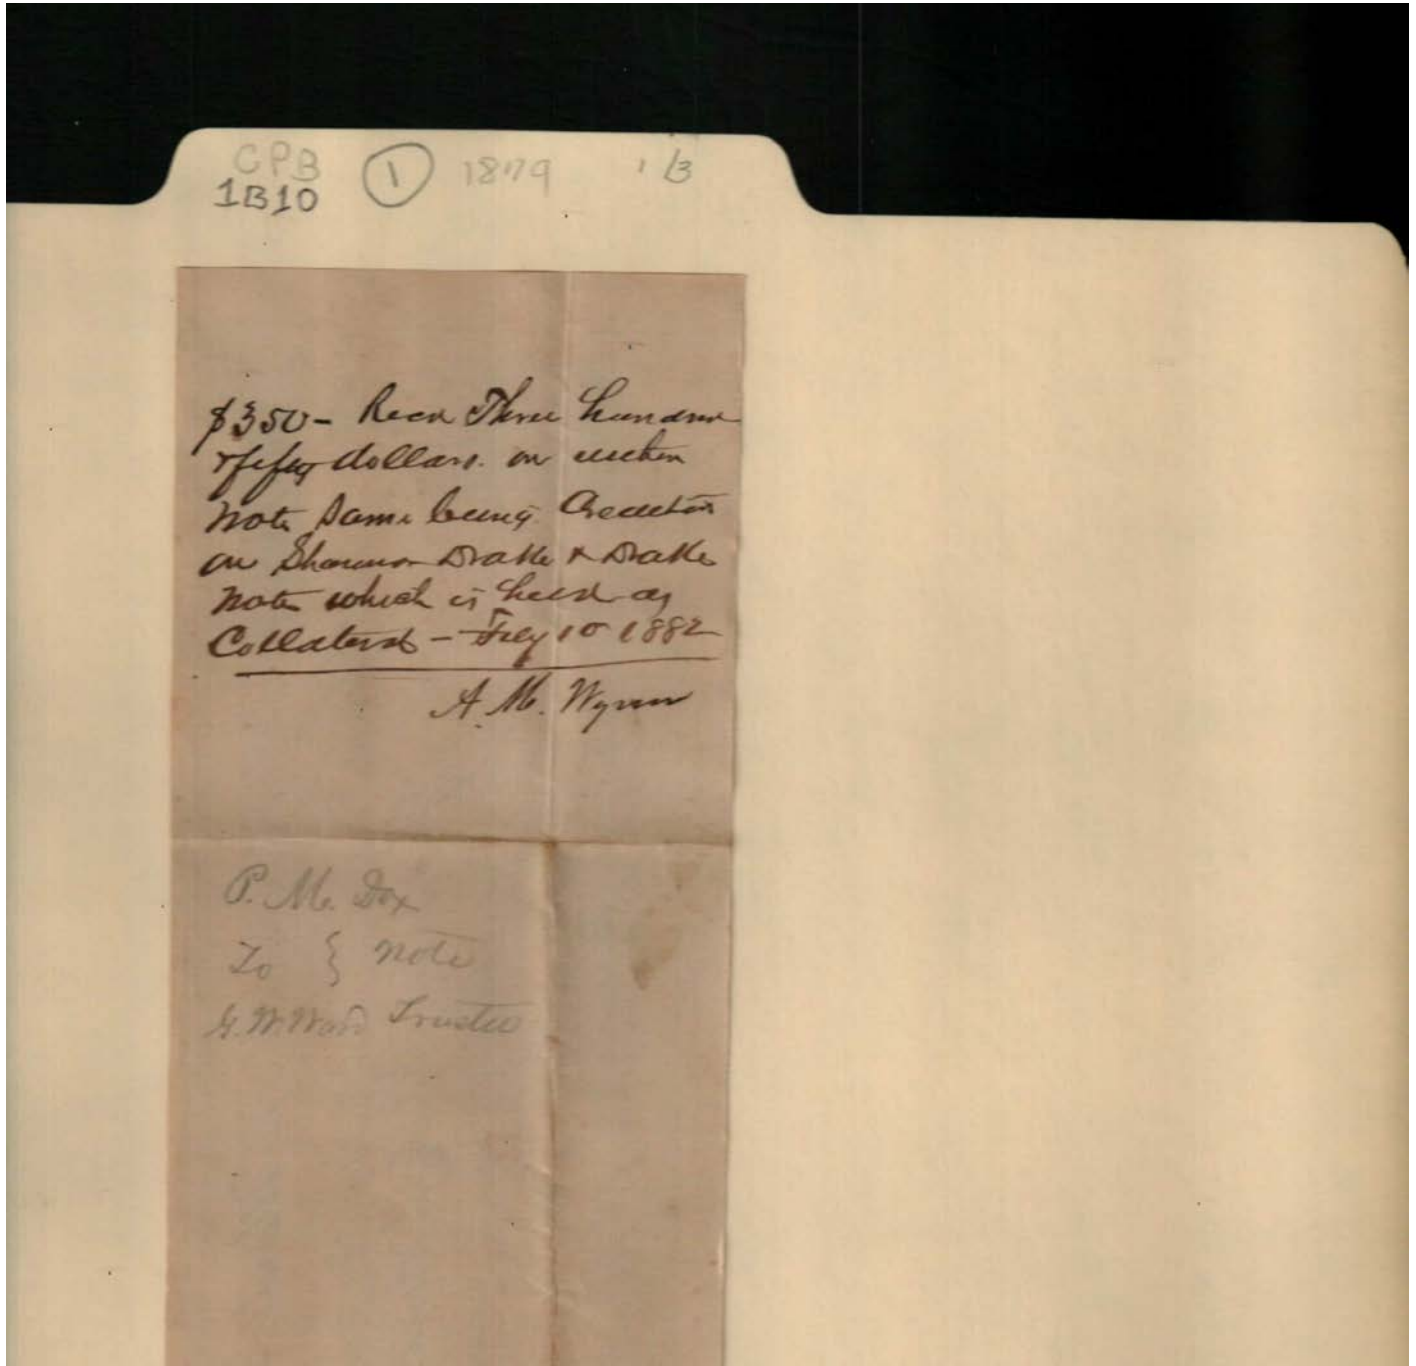 CPB ① 1879 1/3
1B10
$350 - Recd Three hundred
& fifty dollars. on within
Note Same being Credited
on Shannon Drake & Drake
Note which is held as
Collateral - July 10 1882
A. M. Wynn
P. M. Dox
To } Note
G. W. Ward Trustee